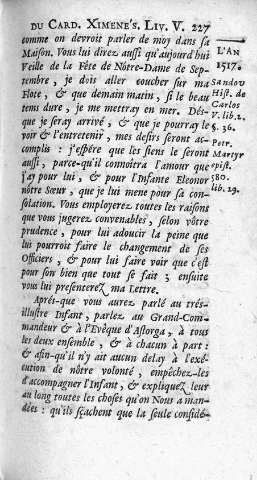 DU CARD. XIMENE'S. LIV. V. 227
comme on devroit parler de moy dans sa
Maison. Vous lui direz aussi qu'aujourd'hui
Veille de la Fête de Nôtre-Dame de Sep-
tembre, je dois aller coucher sur ma
Flote, & que demain matin, si le beau
tems dure, je me mettray en mer. Dés-
que je seray arrivé, & que je pourray le
voir & l'entretenir, mes desirs seront ac-
complis : j'espére que les siens le seront
aussi, parce-qu'il connoîtra l'amour que
j'ay pour lui, & pour l'Infante Eleonor
nôtre Sœur, que je lui mene pour sa con-
solation. Vous employerez toutes les raisons
que vous jugerez convenables, selon vôtre
prudence, pour lui adoucir la peine que
lui pourroit faire le changement de ses
Officiers, & pour lui faire voir que c'est
pour son bien que tout se fait ; ensuite
vous lui presenterez ma Lettre.
Aprés-que vous aurez parlé au trés-
illustre Infant, parlez au Grand-Com-
mandeur & à l'Evêque d'Astorga, à tous
les deux ensemble, & à chacun à part :
& afin-qu'il n'y ait aucun delay à l'exé-
cution de nôtre volonté, empêchez-les
d'accompagner l'Infant, & expliquez leur
au long toutes les choses qu'on Nous a man-
dées : qu'ils sçachent que la seule considé-
L'AN
1517.
Sandov
Hist. de
Carlos
V. lib. 2.
§. 36.
Petr.
Martyr
epist.
580.
lib. 29.